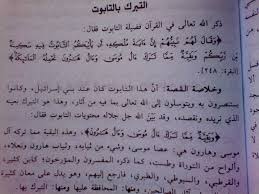 التبرك بالتابوت
ذكر الله تعالى في القرآن فضيلة التابوت فقال:
﴿وَقَالَ لَهُمْ نَبِيُّهُمْ إِنَّ آيَةَ مُلْكِهِ أَن يَأْتِيَكُمُ التَّابُوتُ فِيهِ سَكِينَةٌ
مِّن رَّبِّكُمْ وَبَقِيَّةٌ مِّمَّا تَرَكَ آلُ مُوسَى وَآلُ هَارُونَ تَحْمِلُهُ الْمَلَائِكَةُ﴾
(البقرة: ٢٤٨).
وخلاصة القصة: أن هذا التابوت كان عند بني إسرائيل، وكانوا
يستنصرون به ويتوسلون إلى الله تعالى بما فيه من آثار، وهذا هو التبرك
الذي نريده ونقصده، وقد بين الله جل جلاله محتويات التابوت فقال:
﴿وَبَقِيَّةٌ مِّمَّا تَرَكَ آلُ مُوسَى وَآلُ هَارُونَ﴾، وهذه البقية مما تركه آل
موسى وهارون هي: عصا موسى، وشيء من ثيابه، وثياب هارون ونعلاه،
وألواح من التوراة وطست، كما ذكره المفسرون والمؤرخون، كابن كثير،
والقرطبي، والسيوطي، والطبري، فارجع إليهم، وهو يدل على معان كثيرة،
منها: المحافظة عليها، ومنها: التبرك